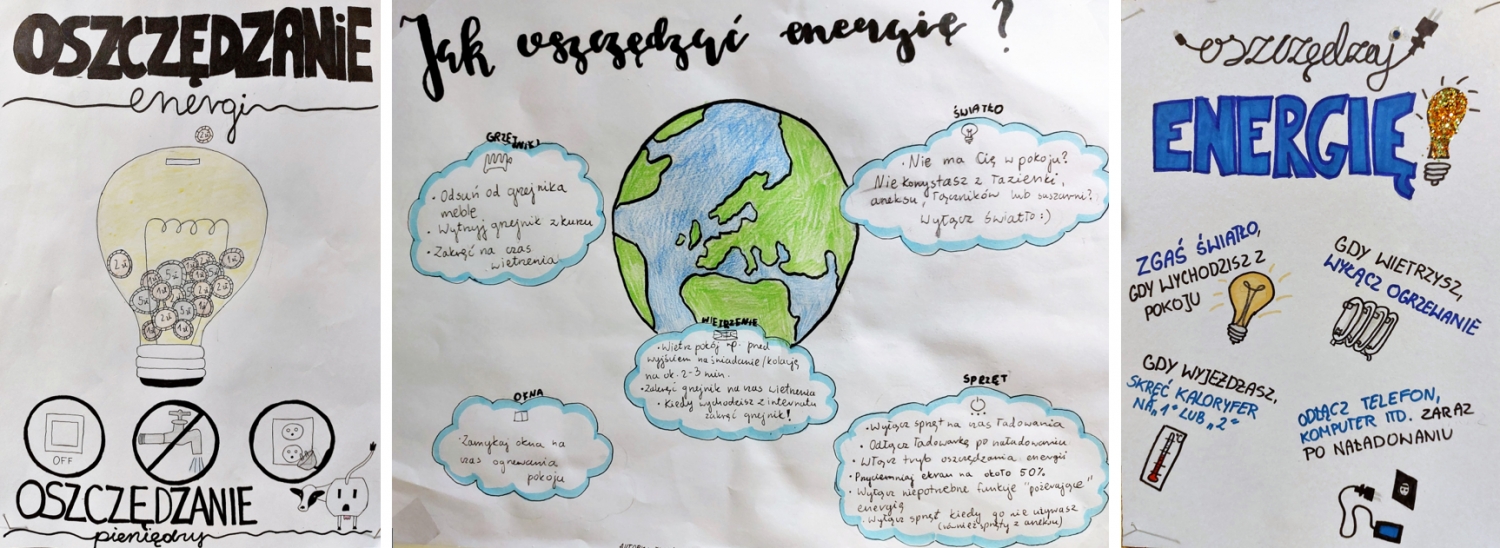 OSZCZĘDZANIE
energi
2zł
2zł
5zł
1zł
2zł
1zł
1zł
2zł
5zł
1zł
2zł
5zł
1zł
2zł
1zł
1zł
OFF
OSZCZĘDZANIE
pieniędzy
Jak oszczędzać energię ?
GRZEJNIKI
• Odsuń od grzejnika
meble
• Wytrzyj grzejnik z kurzu
• Zakręć na czas
wietrzenia
ŚWIATŁO
• Nie ma Cię w pokoju?
Nie korzystasz z łazienki,
aneksu, łączników lub suszarni?
Wyłącz światło :)
WIETRZENIE
• Wietrz pokój np. przed
wyjściem na śniadanie/kolację
na ok. 2-3 min.
• Zakręć grzejnik na czas wietrzenia
• Kiedy wychodzisz z internatu
zakręć grzejnik!
OKNA
Zamykaj okna na
czas ogrzewania
pokoju
SPRZĘT
• Wyłącz sprzęt na czas ładowania
• Odłącz ładowarkę po naładowaniu
• Włącz tryb oszczędzania energii
• Przyciemniaj ekran na około 50%
• Wyłącz niepotrzebne funkcje "pożerające"
energię
• Wyłącz sprzęt kiedy go nie używasz
(również sprzęty z aneksu)
oszczędzaj
ENERGIĘ
ZGAŚ ŚWIATŁO,
GDY WYCHODZISZ Z
POKOJU
GDY WIETRZYSZ,
WYŁĄCZ OGRZEWANIE
GDY WYJEŻDŻASZ,
SKRĘĆ KALORYFER
NA „1" LUB „2"
ODŁĄCZ TELEFON,
KOMPUTER ITD. ZARAZ
PO NAŁADOWANIU